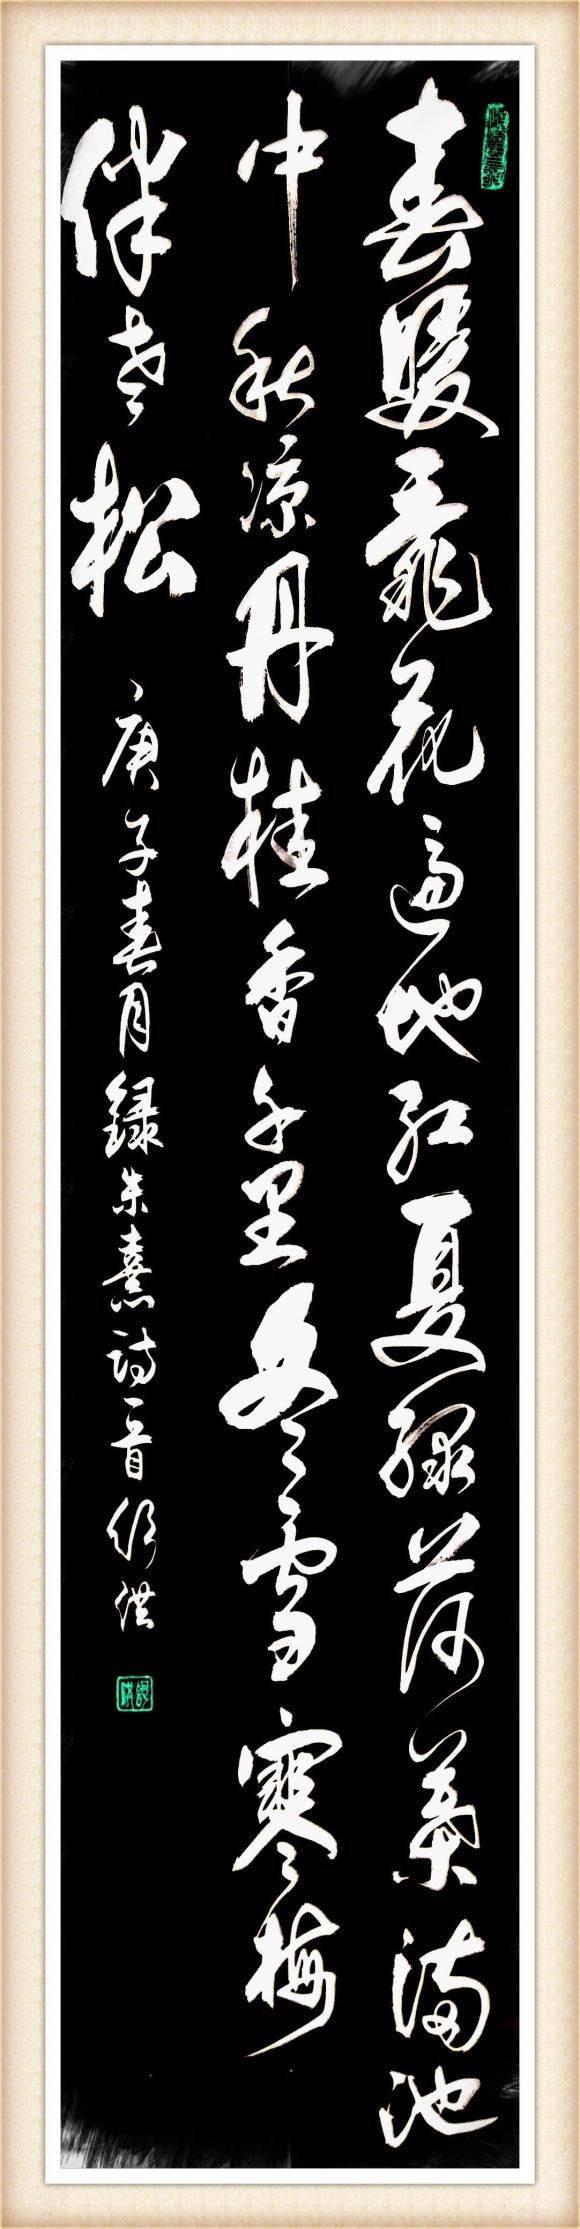 春暖花遍地红夏绿荷葉满池
中秋凉丹桂香千里冬雪寒梅
伴老松
庚子春月録朱熹詩一首